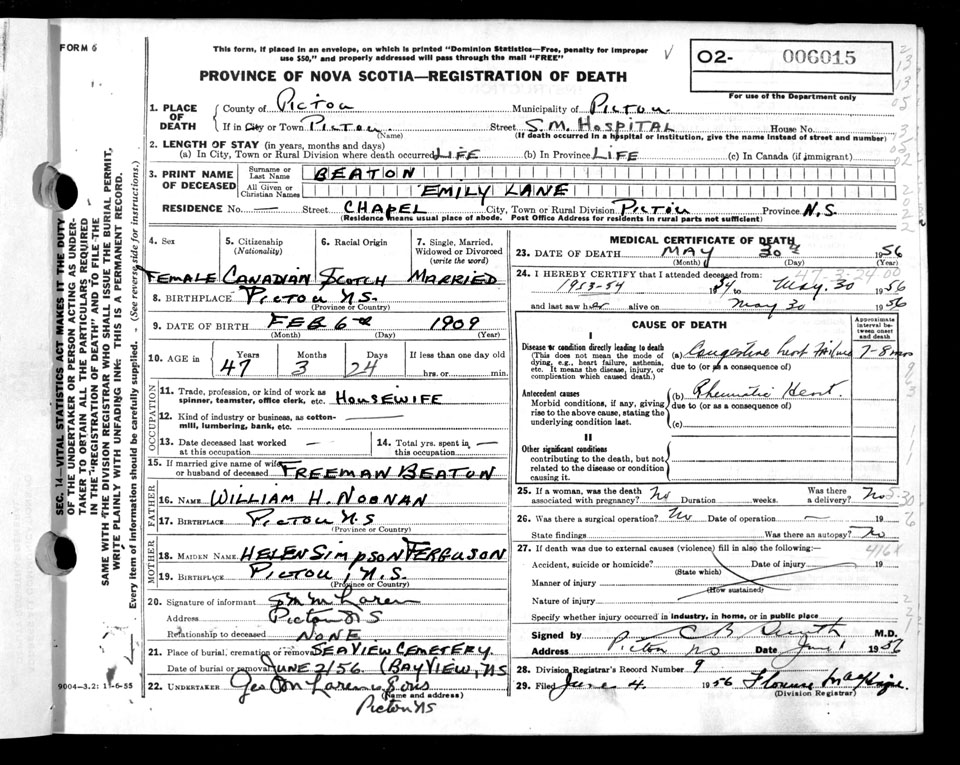 FORM 6
This form, if placed in an envelope, on which is printed "Dominion Statistics—Free, penalty for improper
use $50," and properly addressed will pass through the mail "FREE"
PROVINCE OF NOVA SCOTIA—REGISTRATION OF DEATH
O2- 006015
For use of the Department only
1. PLACE OF DEATH
County of Pictou Municipality of Pictou
If in City or Town Pictou (Name) Street S.M. HOSPITAL House No.
(If death occurred in a hospital or institution, give the name instead of street and number)
2. LENGTH OF STAY (in years, months and days)
(a) In City, Town or Rural Division where death occurred LIFE (b) In Province LIFE (c) In Canada (if immigrant)
3. PRINT NAME OF DECEASED
Surname or Last Name BEATON
All Given or Christian Names EMILY LANE
RESIDENCE No. — Street CHAPEL City, Town or Rural Division PICTOU Province N.S.
(Residence means usual place of abode. Post Office Address for residents in rural parts not sufficient)
4. Sex
5. Citizenship (Nationality)
6. Racial Origin
7. Single, Married, Widowed or Divorced (write the word)
FEMALE CANADIAN SCOTCH MARRIED
8. BIRTHPLACE PICTOU N.S.
(Province or Country)
9. DATE OF BIRTH FEB 6th 1909
(Month) (Day) (Year)
10. AGE in Years 47 Months 3 Days 24 If less than one day old
hrs. or min.
OCCUPATION
11. Trade, profession, or kind of work as spinner, teamster, office clerk, etc. HOUSEWIFE
12. Kind of industry or business, as cotton-mill, lumbering, bank, etc. —
13. Date deceased last worked at this occupation —
14. Total yrs. spent in this occupation —
15. If married give name of wife or husband of deceased FREEMAN BEATON
FATHER
16. NAME WILLIAM H. NOONAN
17. BIRTHPLACE PICTOU N.S
(Province or Country)
MOTHER
18. MAIDEN NAME HELEN SIMPSON FERGUSON
19. BIRTHPLACE PICTOU, N.S.
(Province or Country)
20. Signature of informant
Address Pictou N S
Relationship to deceased NONE
21. Place of burial, cremation or removal SEAVIEW CEMETERY.
Date of burial or removal JUNE 2/56. (BAYVIEW, NS
22. UNDERTAKER
(Name and address)
Pictou NS
MEDICAL CERTIFICATE OF DEATH
23. DATE OF DEATH MAY 30th 1956
(Month) (Day)
24. I HEREBY CERTIFY that I attended deceased from: 47-3-24 00
1953-54 to May. 30 1956
and last saw her alive on May 30 1956
CAUSE OF DEATH
Approximate interval between onset and death
I
Disease or condition directly leading to death
(This does not mean the mode of dying, e.g., heart failure, asthenia, etc. It means the disease, injury, or complication which caused death.)
(a) Congestive heart failure 7-8 mos
due to (or as a consequence of)
Antecedent causes
Morbid conditions, if any, giving rise to the above cause, stating the underlying condition last.
(b) Rheumatic Heart.
due to (or as a consequence of)
(c)
II
Other significant conditions
contributing to the death, but not related to the disease or condition causing it.
25. If a woman, was the death associated with pregnancy? No Duration weeks. Was there a delivery? No
26. Was there a surgical operation? No Date of operation — 19
State findings Was there an autopsy? No
27. If death was due to external causes (violence) fill in also the following:— 416X
Accident, suicide or homicide? (State which) Date of injury 19
Manner of injury (How sustained)
Nature of injury
Specify whether injury occurred in industry, in home, or in public place
Signed by M.D.
Address Pictou NS Date June 1 1956
28. Division Registrar's Record Number 9
29. Filed June 4. 1956 Florence
(Division Registrar)
SEC. 14—VITAL STATISTICS ACT MAKES IT THE DUTY
OF THE UNDERTAKER OR PERSON ACTING AS UNDER-
TAKER TO OBTAIN ALL THE PARTICULARS REQUIRED
IN THE "REGISTRATION OF DEATH" AND TO FILE THE
SAME WITH THE DIVISION REGISTRAR WHO SHALL ISSUE THE BURIAL PERMIT.
WRITE PLAINLY WITH UNFADING INK: THIS IS A PERMANENT RECORD.
Every item of information should be carefully supplied. - (See reverse side for instructions.)
9004-3.2: 11-6-55